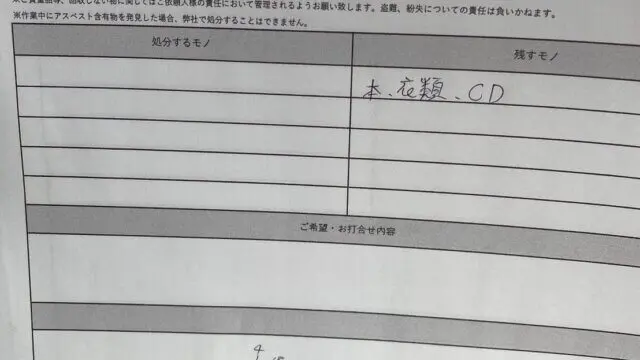 ※ご貴重品等、回収しない物に関してはご依頼人様の責任において管理されるようお願い致します。盗難、紛失についての責任は負いかねます。
※作業中にアスベスト含有物を発見した場合、弊社で処分することはできません。
処分するモノ
残すモノ
本、衣類、CD
ご希望・お打合せ内容